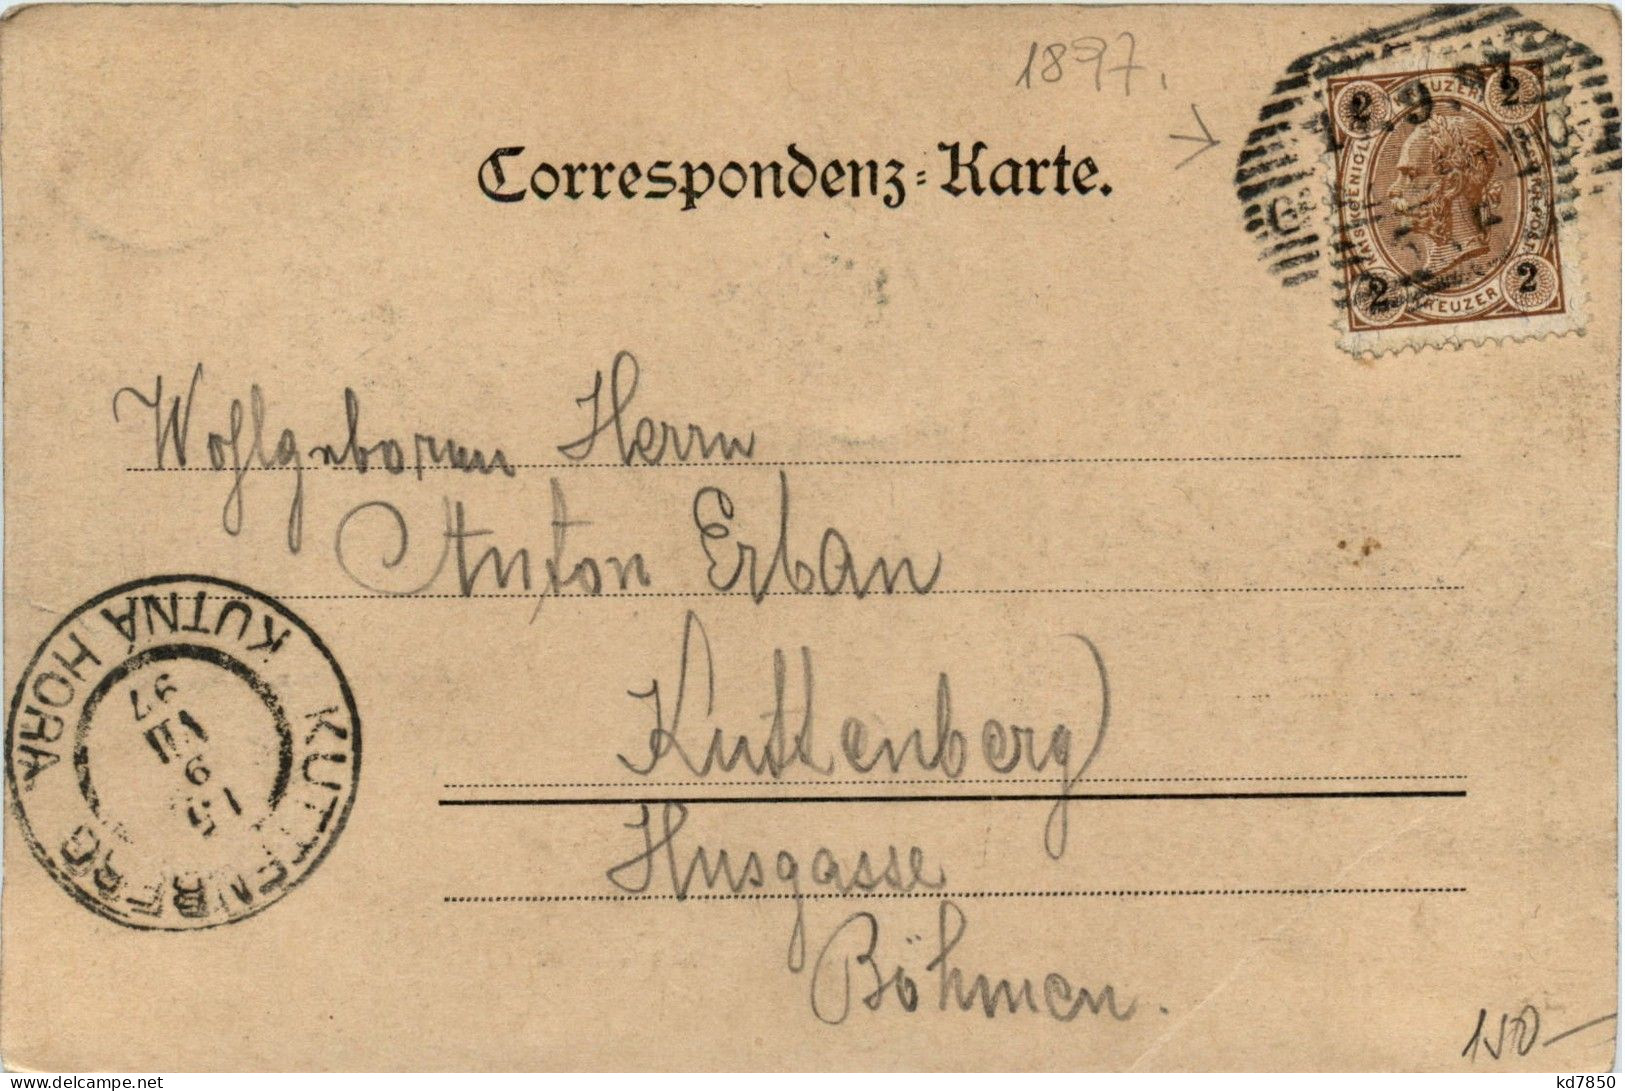 1897.
Correspondenz-Karte.
2 KREUZER 2
KAISERKOENIGL
2 KREUZER 2
Wohlgeboren Herrn
Anton Erban
Kuttenberg
Husgasse
Böhmen.
KUTTENBERG
KUTNÁ HORA
97
150-
delcampe.net
kd7850